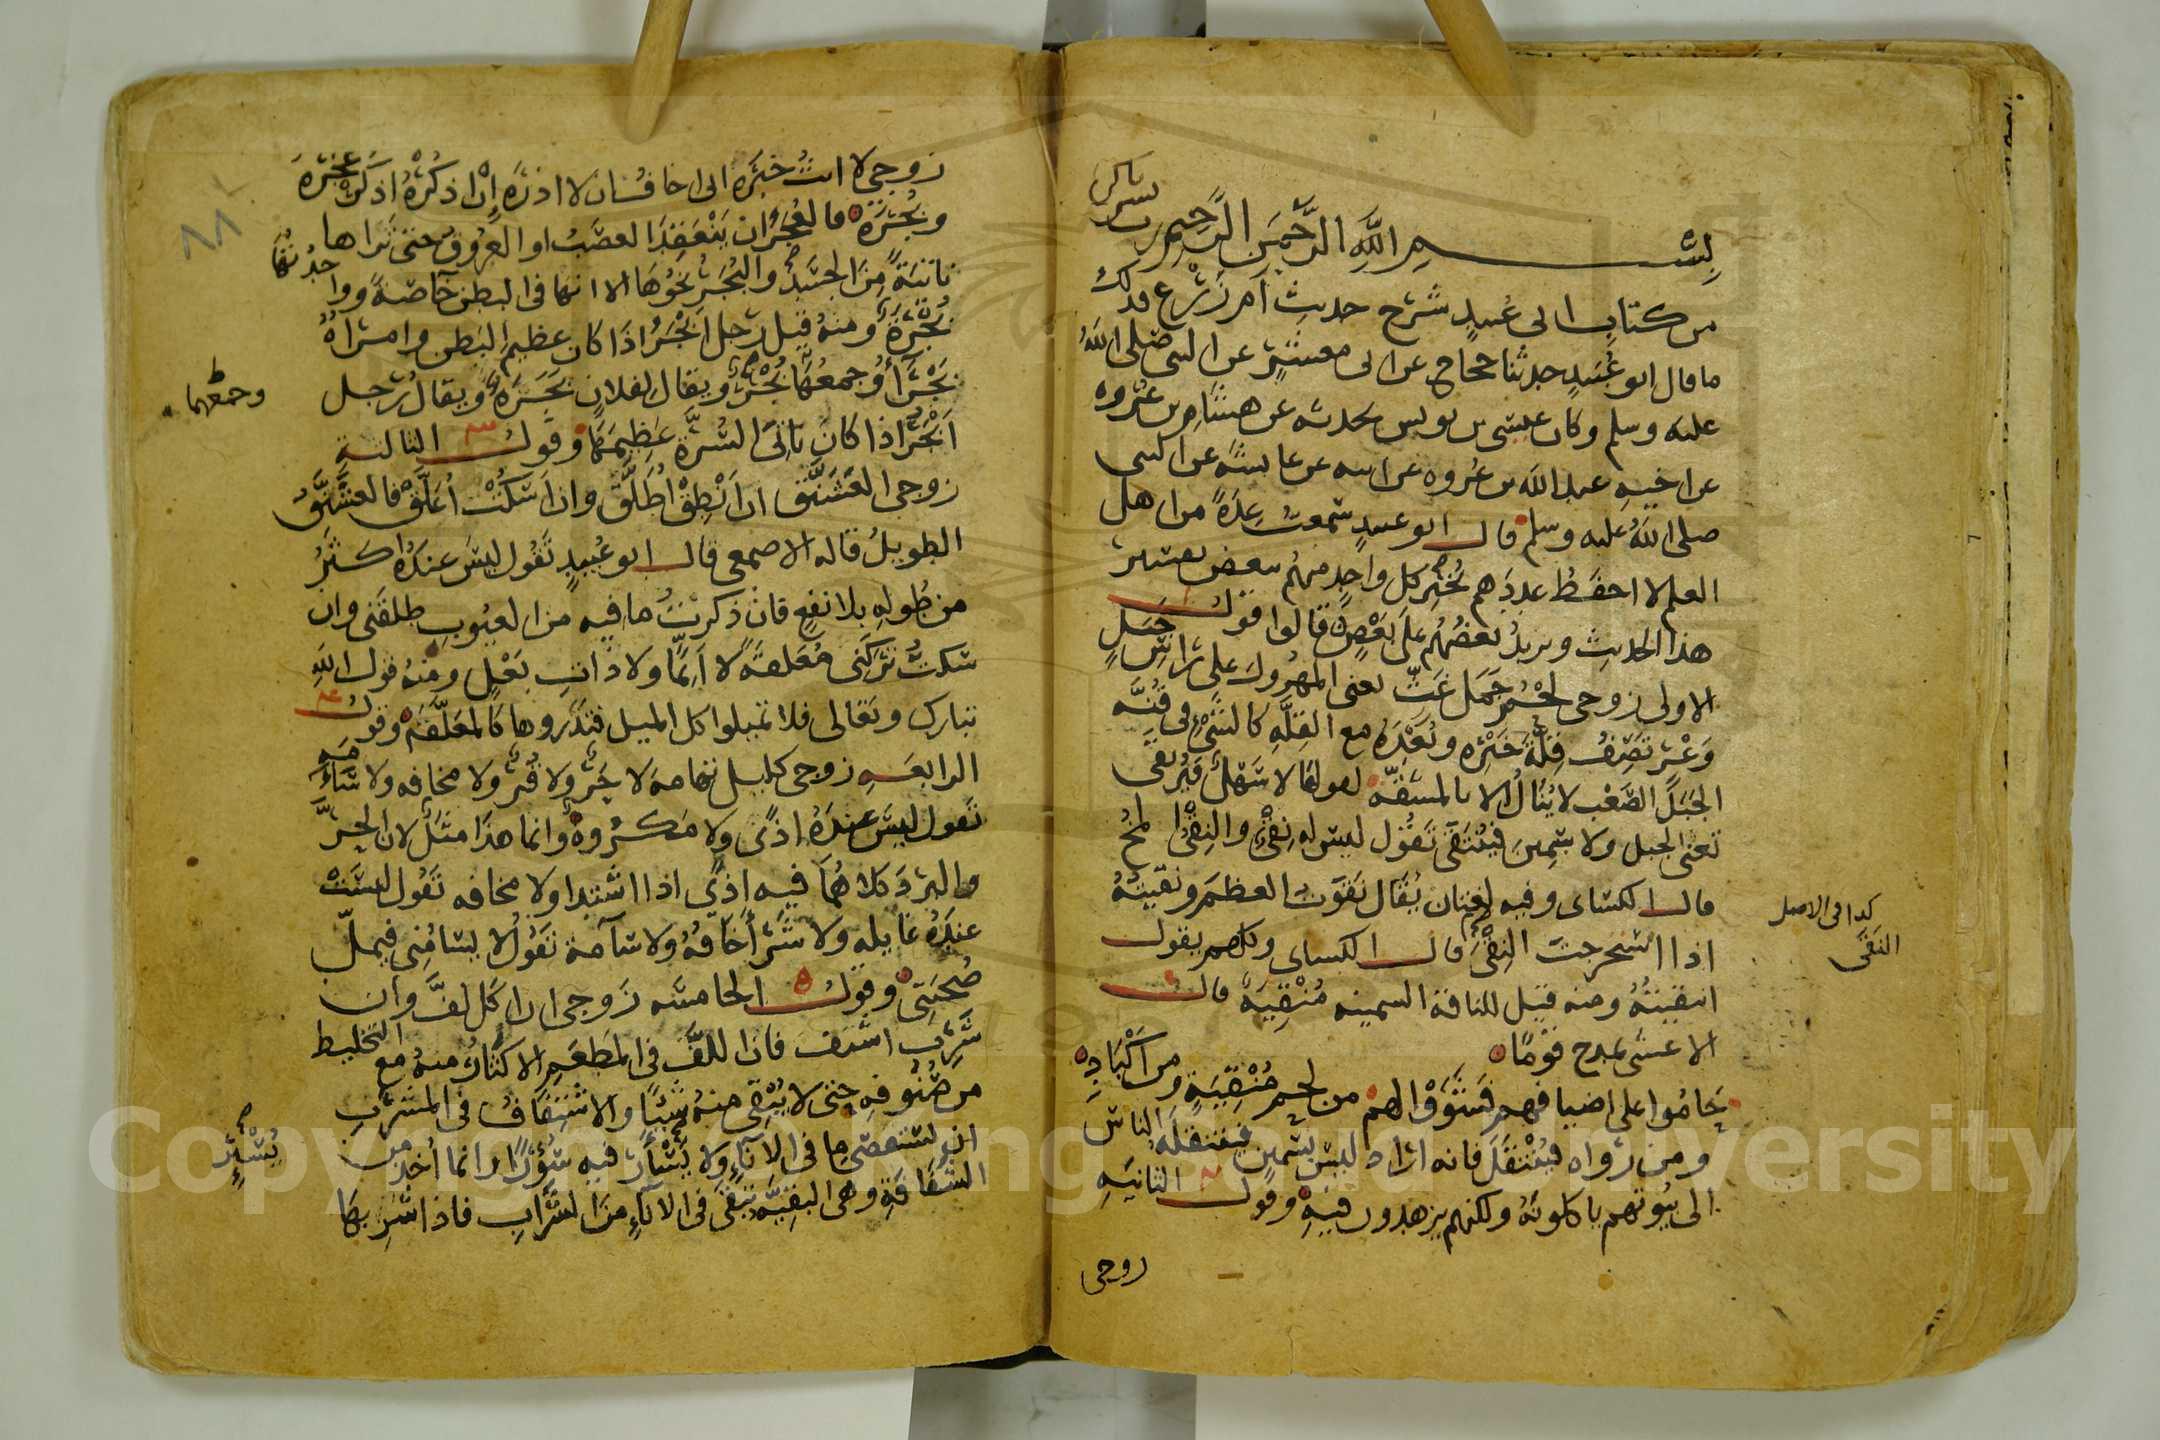 بِسْمِ اللَّهِ الرَّحْمَنِ الرَّحِيمِ
من كتاب ابى عُبيدٍ شَرْح حديث أم زَرْع قدلك
ما قال ابو عُبَيدٍ حدثنا حجاج عن ابى معشَرٍ عن النبى صَلى اللهُ
عليه وسلم وكان عيسى بن يونس يحدثه عن هشام بن عُروه
عن اخيهِ عبد الله بن عُروه عن ابيه عن عايشة عن النبى
صلى اللهُ عليه وسلم قال ابو عبيدٍ سَمعتُ عِدَةً من اهل
العلم لا احفَظُ عددَهم يُخبِر كل واحِدٍ منهُم ببعض تفسير
هذا الحديث ويزيدُ بعضُهُم على بَعْضٍ قالوا قول
الاولى زوجى لحْمُ جَمَل غَثّ تعنى المهزول على رَاسِ جَبَلٍ
وَعْرٍ تَصِفُ قِلَّةَ خَيْرِه وبُعْدَهُ مع القِلَّهِ كالشَّىْءِ فى قُنَّه
الجَبَل الصَّعْب لا يُنَالُ الا بالمشقَّه لقولها لا سَهْل فَيُرتقَى
تَعنى الجبل ولا سَمِين فيُنْتَقَى تَقُول ليس له نِقْىٌ والنِقْىُ المخُ
قال الكسَاى وفيه لغتان يُقَال نَقَوْتُ العظمَ ونَقَيْتُهُ
اذا استخرجتَ النِقْىَ قال الكساى وكلهم يقول
انتقيتُهُ ومنه قيل للناقة السمينه مُنْقِيَة قال
الاعشى يمدح قَوْمًا
حَامُوا على اضيافهم فَشَوَوْا لهم من لحم مُنْقِيَةٍ ومن اكْبَادِ
ومن رَوَاه فيُنْتَقَل فانه اراد ليس بسَمينٍ فينتقلَه الناس
الى بُيُوتهم ياكلونَهُ ولكنهم يزهدون فيهِ وقول الثانيَهِ
زوجى
كذا فى الاصل
النقَى
زوجى لا ابثُ خبَرَه انى اخافُ ان لا اذرَه إنْ اذكُرْهُ اذكُرْ عُجَرَهُ
وبُجَرَه فالعُجَرُ ان يَتْعَقِدَ العصَبُ او العرُوقُ حتى تَراها
ناتئَةً مِنَ الجسَدِ والبُجَرُ نحوُها الا انها فى البطن خاصّةً وواحِدُتُها
بُجْرَة ومنهُ قيل رَجل ابْجَرُ اذا كان عظيم البَطن وامرَاةٌ
بَجْرَآءُ وجمعُهَا بُجْرٌ ويقال لفلانٍ بَجَرَةٌ ويقالُ رَجل
وجمعهما
اَبْجَرُ اذا كان نَاتِئَ السُّرَّة عَظِيمَهَا وقول الثالثة
زوجى العَشَنَّق ان اَنْطِقْ اُطَلَّق وان اَسْكُتْ اُعَلَّق فالعشَنَّقُ
الطويلُ قاله الاصمعى قال ابو عُبيدٍ تَقُول ليسَ عندَهُ اكثَرُ
من طُولِهِ بلا نفعٍ فان ذكرتُ ما فيه من العيُوب طلقَنى وان
سَكتُّ تَرَكنى مُعَلقةً لا اَيِّمًا ولا ذَاتِ بَعْلٍ ومنهُ قول اللهِ
تبارك وتَعَالى فلا تميلوا كل الميل فتذَروها كالمعَلَّقَة وقول
الرابعَهِ زوجى كليل تهامة لا حَرٌّ ولا قُرٌّ ولا مخافه ولا سَآمه
تَقول ليسَ عِندَهُ اذًى ولا مَكروهٌ وانما هذَا مثَلٌ لان الحرَّ
والبَردَ كلاهُمَا فيه اذًى اذا اشتدا ولا مخافه تَقُول ليسَتْ
عندَهُ غايله ولا شَرٌّ أخَافُهُ ولا سآمة تَقُولُ لا يسَامُنى فيملّ
صُحبَتى وقول الخامسَه زَوجى ان اكل لَفَّ وان
شَرِبَ اشتفَ فان اللفَّ فى المَطعَمِ الاكثَارُ منهُ مع التخليط
من صُنُوفِهِ حتى لا يُبْقى منهُ شيئًا والاشْتِفَافُ فى المشرَبِ
ان يستقصى ما فى الاناءِ ولا يُسْأر فيه سُؤرًا وانما أُخِذ من
يُسْئِر
الشُفَافَةِ وهى البقيَّه تبقَى فى الاناءِ منَ الشَّرَابِ فاذا شرِبهَا
Copyright © King Saud University